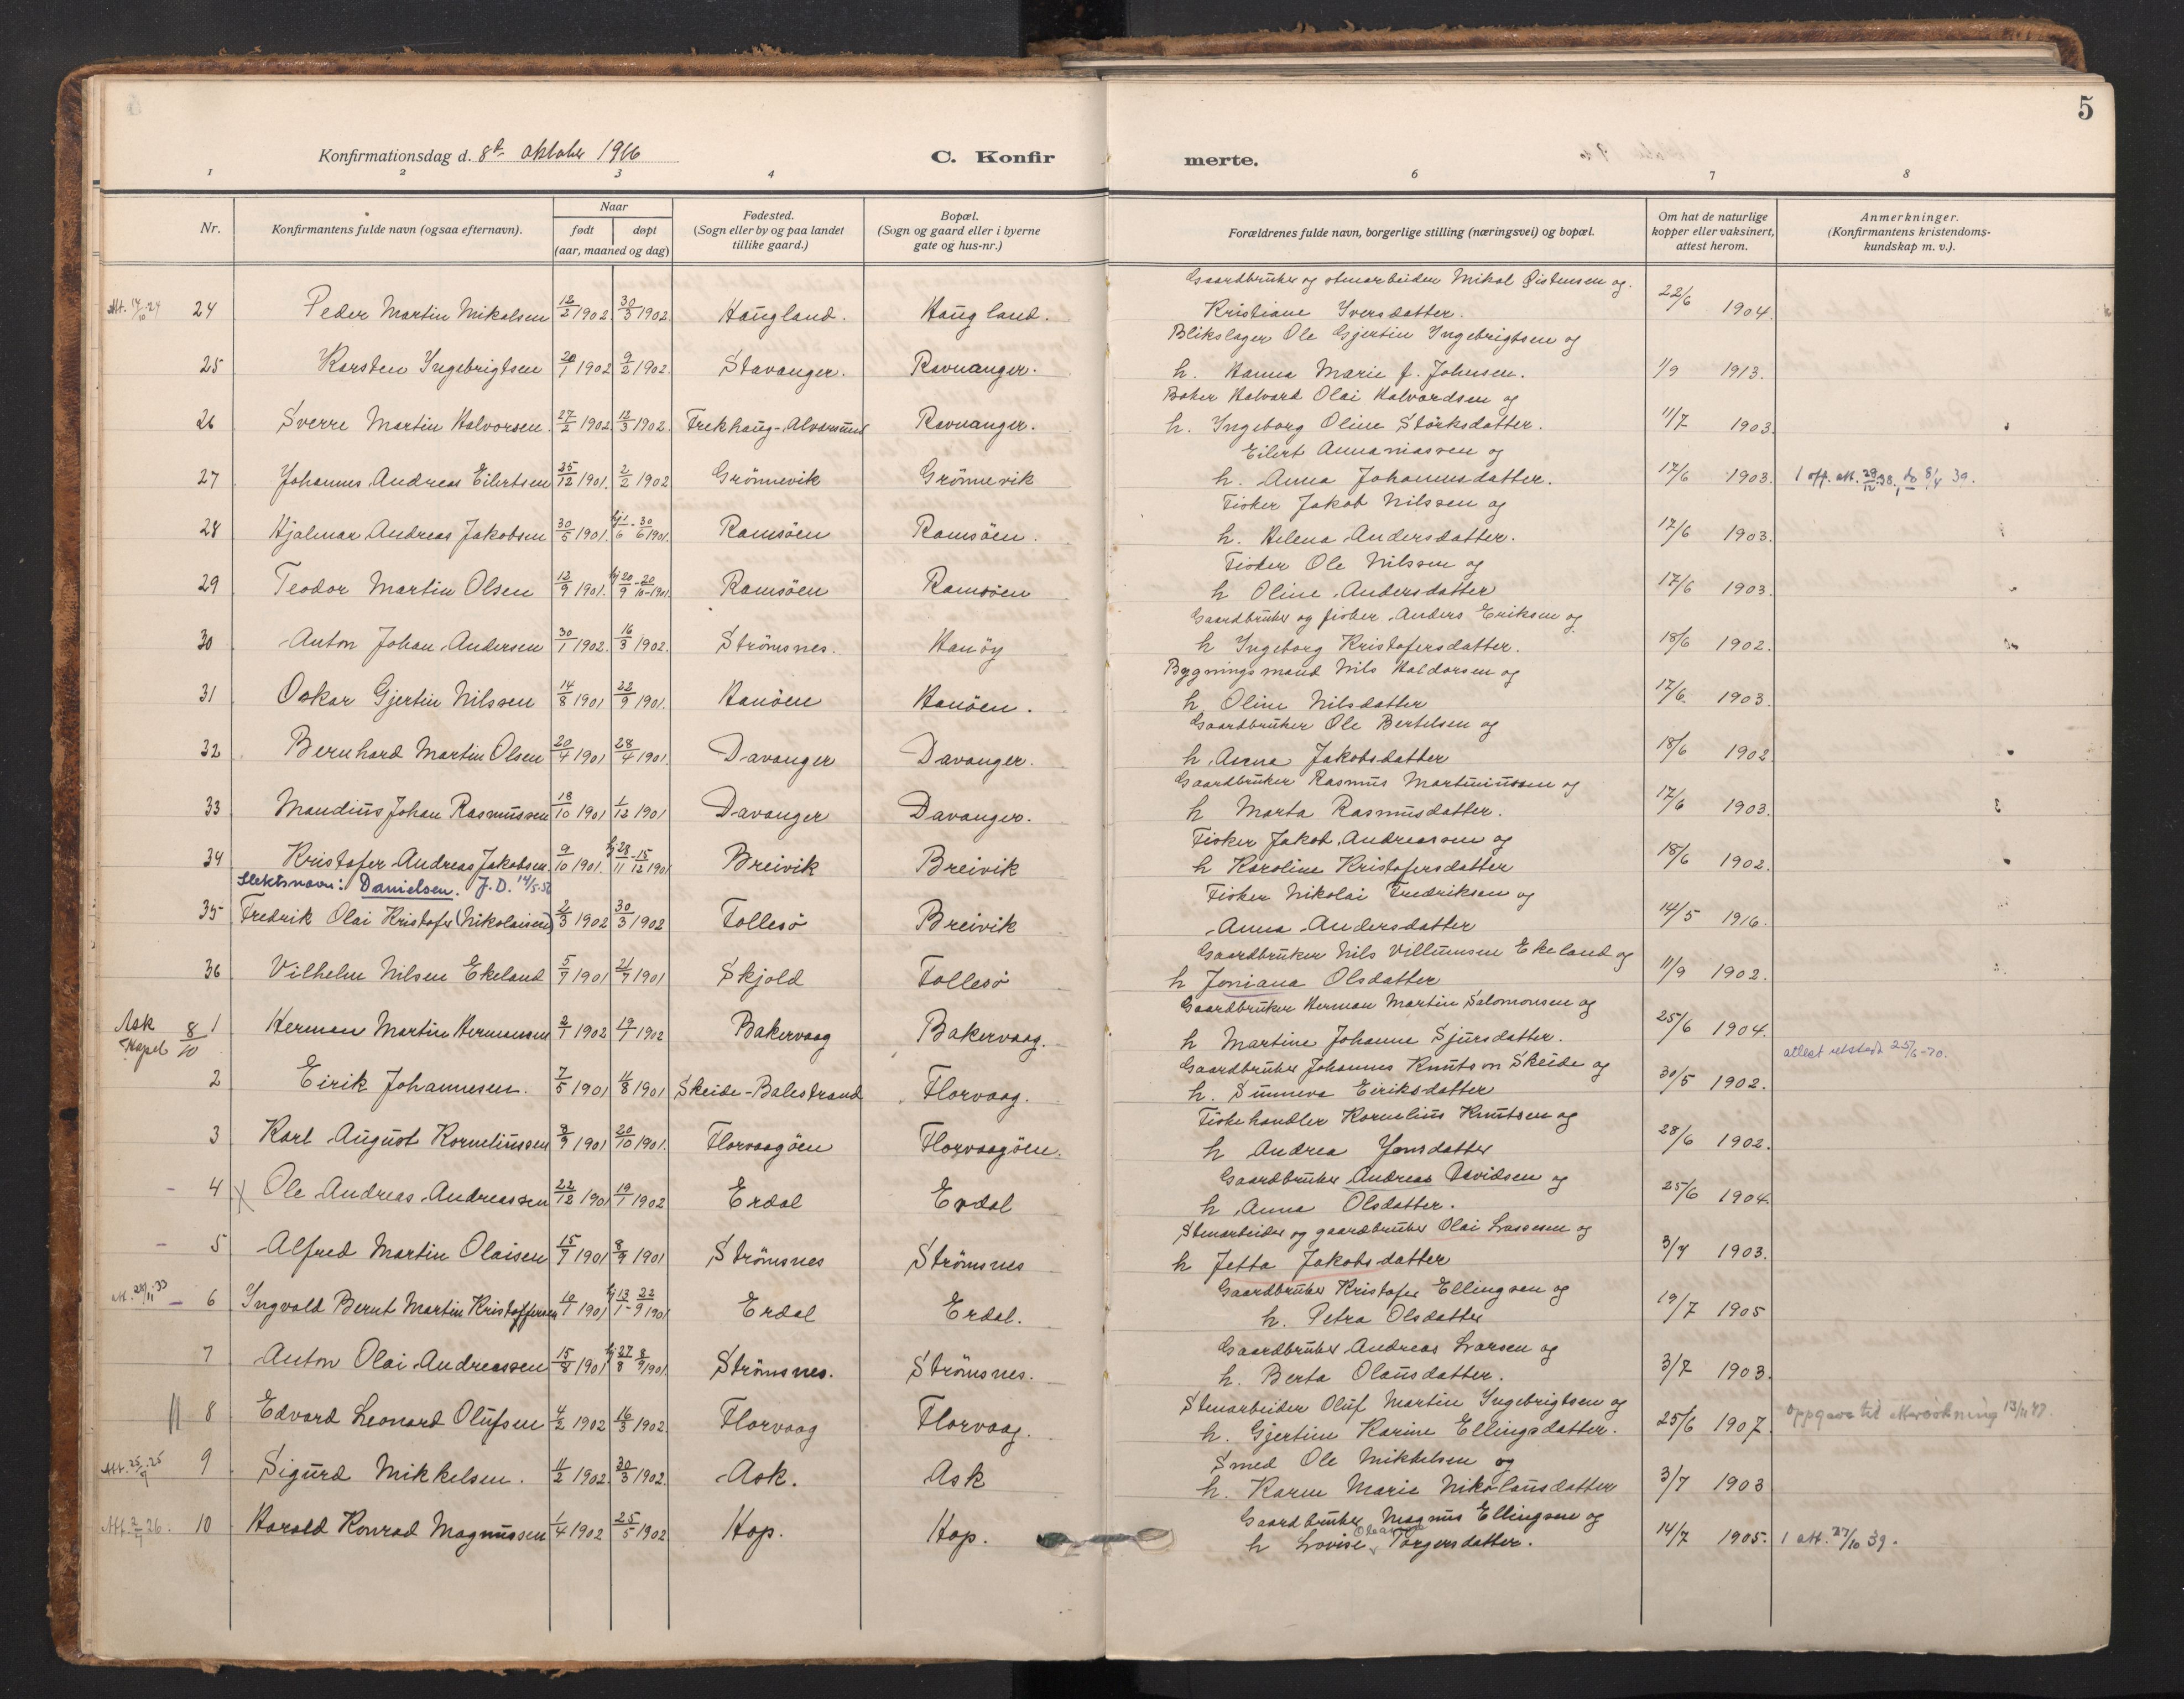 5
Konfirmationsdag d. 8de oktober 1916
C. Konfirmerte.
1 2 3 4 6 7 8
Nr.
Konfirmantens fulde navn (ogsaa efternavn).
Naar
født
døpt
(aar, maaned og dag)
Fødested.
(Sogn eller by og paa landet
tillike gaard.)
Bopæl.
(Sogn og gaard eller i byerne
gate og hus-nr.)
Forældrenes fulde navn, borgerlige stilling (næringsvei) og bopæl.
Om hat de naturlige
kopper eller vaksinert,
attest herom.
Anmerkninger.
(Konfirmantens kristendoms-
kundskap m. v.).
Gaardbruker og stenarbeider Mikal Øistensen og
Att. 14/10 24 24 Peder Martin Mikalsen 12/2 1902. 30/3 1902. Haugland. Haugland. Kristiane Iversdatter. 22/6 1904.
Blikslager Ole Gjertin Ingebrigtsen og
25 Karsten Ingebrigtsen 20/1 1902 9/2 1902. Stavanger. Ravnanger. h. Hanna Marie f. Johnsen. 1/9 1913.
Baker Halvard Olai Halvardsen og
26 Sverre Martin Halvorsen. 27/2 1902. 12/3 1902. Frekhaug-Alversund Ravnanger. h. Ingeborg Oline Størksdatter. 11/7 1903.
Eilert Annaniassen og
27 Johannes Andreas Eilertsen 25/12 1901. 2/2 1902 Grønnevik Grønnevik h. Anna Johannesdatter. 17/6 1903. 1 off. att. 29/12 38. 1 do 8/4 39.
Fisker Jakob Nilssen og
28 Hjalmar Andreas Jakobsen 30/5 1901. hj 1/6 - 30/6 1901. Ramsøen Ramsøen. h. Helena Andersdatter. 17/6 1903.
Fisker Ole Nilssen og
29 Teodor Martin Olsen 12/9 1901. hj 20/9 - 20/10 1901. Ramsøen Ramsøen h Oline Andersdatter 17/6 1903.
Gaardbruker og fisker Anders Eriksen og
30 Anton Johan Andersen 30/1 1902. 16/3 1902. Strømsnes. Hanøy h Ingeborg Kristofersdatter. 18/6 1902.
Bygningsmand Nils Haldorsen og
31 Oskar Gjertin Nilssen 14/8 1901 22/9 1901. Hanøen Hanøen. h Oline Nilsdatter 17/6 1903.
Gaardbruker Ole Bertelsen og
32 Bernhard Martin Olsen 20/4 1901 28/4 1901. Davanger Davanger. h. Anna Jakobsdatter 18/6 1902
Gaardbruker Rasmus Martiniussen og
33 Mandius Johan Rasmussen 18/10 1901 1/12 1901 Davanger Davanger. h Marta Rasmusdatter. 17/6 1903.
Fisker Jakob Andreassen og
34 Kristofer Andreas Jakobsen 9/10 1901. hj 28/11 - 15/12 1901 Breivik Breivik h Karoline Kristofersdatter 18/6 1902.
Slektsnavn: Danielsen. J.D. 14/5-52
Fisker Nikolai Fredriksen og
35 Fredrik Olai Kristofer (Nikolaisen) 2/3 1902 30/3 1902 Follesø Breivik Anna Andersdatter 14/5 1916.
Gaardbruker Nils Villumsen Ekeland og
36 Vilhelm Nilsen Ekeland 5/7 1901 21/7 1901 Skjold Follesø h Joniana Olsdatter 11/9 1902.
Gaardbruker Herman Martin Salomonsen og
Ask Kapel 8/10 1 Herman Martin Hermansen 2/1 1902 19/1 1902 Bakervaag Bakervaag. h Martine Johanne Sjursdatter. 25/6 1904.
attest utstedt 25/6-70.
Gaardbruker Johannes Knutson Skeide og
2 Eirik Johannesen. 7/5 1901 11/8 1901 Skeide-Balestrand Florvaag. h. Sunneva Eiriksdatter 30/5 1902.
Fiskehandler Kornelius Knutsen og
3 Karl August Korneliussen 8/9 1901 20/10 1901. Florvaagøen Florvaagøen. h Andrea Jonsdatter 28/6 1902.
Gaardbruker Andreas Davidsen og
- 4 X Ole Andreas Andreassen 22/12 1901 19/1 1902 Erdal Erdal h Anna Olsdatter. 25/6 1904.
Stenarbeider og gaardbruker Olai Lassesen og
- 5 Alfred Martin Olaisen 15/7 1901 8/9 1901 Strømsnes Strømsnes h Jetta Jakobsdatter 3/7 1903.
Gaardbruker Kristofer Ellingsen og
att. 28/11 33 - 6 Ingvald Bernt Martin Kristoffersen 10/1 1901 hj 13/1 - 22/9 1901 Erdal Erdal. h. Petra Olsdatter 19/7 1905
Gaardbruker Andreas Larsen og
7 Anton Olai Andreassen 15/8 1901 hj 27/8 8/9 1901. Strømsnes. Strømsnes. h. Berta Olausdatter. 3/7 1903.
Stenarbeider Oluf Martin Ingebrigtsen og
8 Edvard Leonard Olufsen 4/2 1902 16/3 1902. Florvaag Florvaag. h. Gjertine Karine Ellingsdatter. 25/6 1907. oppgave til 13/11 47.
Smed Ole Mikkelsen og
Att. 25/7 25 9 Sigurd Mikkelsen. 11/2 1902. 30/3 1902. Ask. Ask h. Karen Marie Nikolausdatter 3/7 1903
Gaardbruker Magnus Ellingsen og
Att. 2/7 26. 10 Harald Konrad Magnussen 1/4 1902 25/5 1902 Hop. Hop. h Lovise Torgersdatter. 14/7 1905. 1 att. 27/10 39.